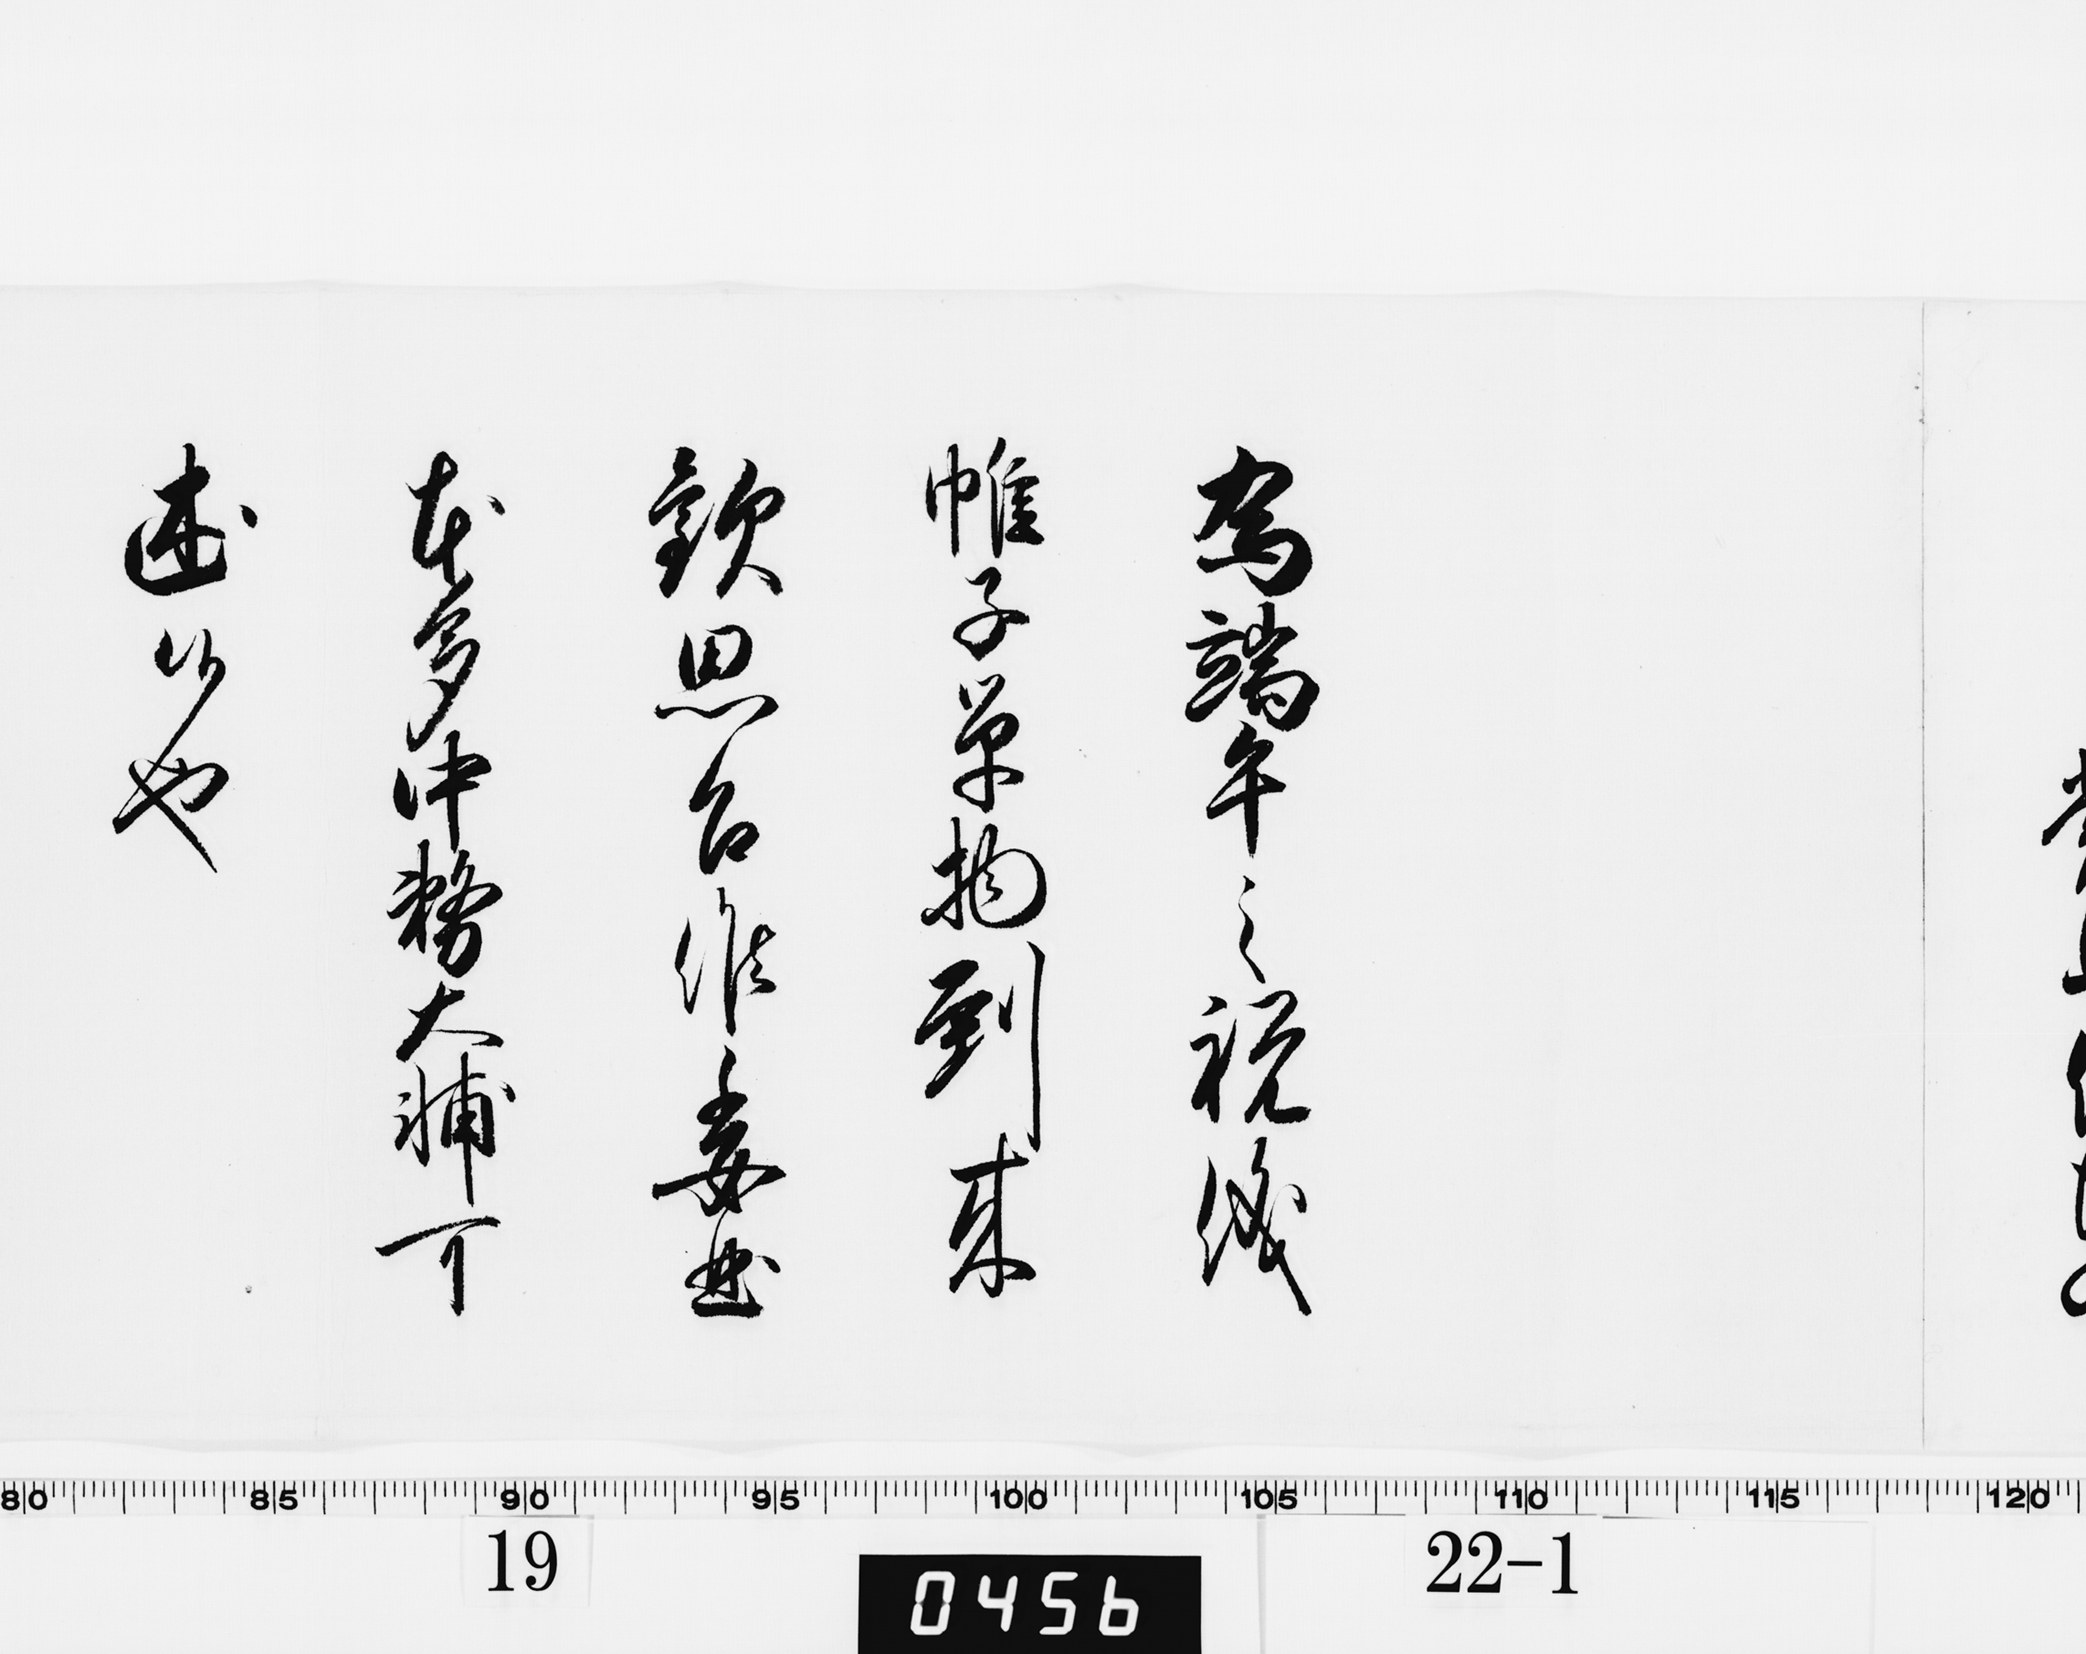 為端午之祝儀
帷子単物到来
歓思召候委曲
本多中務大輔可
述候也
80 85 90 95 100 105 110 115 120
19
22-1
0456